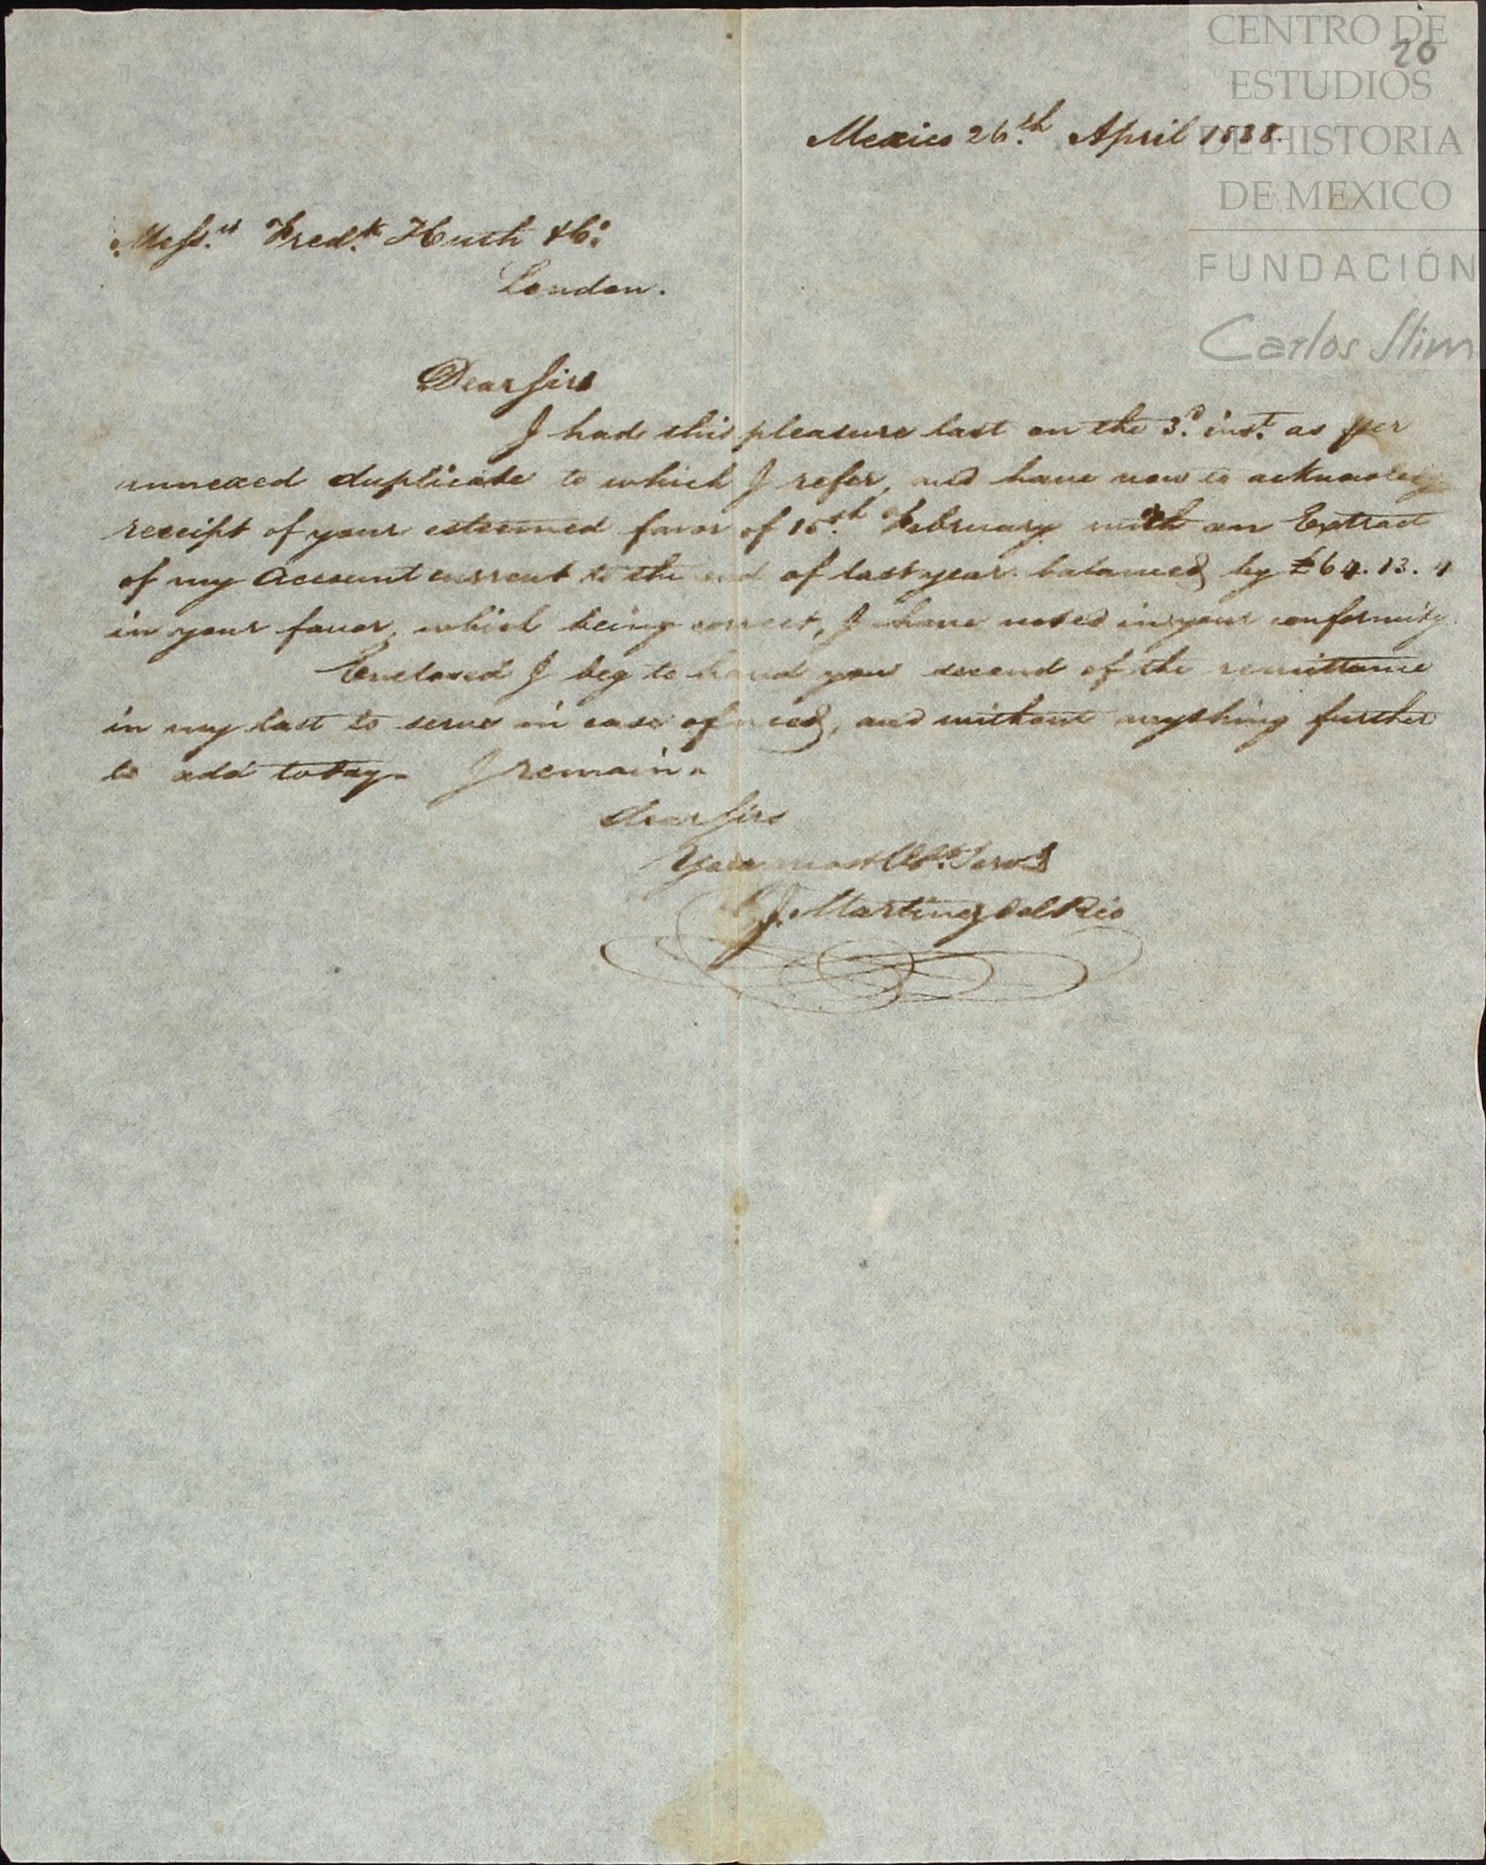 CENTRO DE
ESTUDIOS
DE HISTORIA
DE MEXICO
FUNDACIÓN
Carlos Slim
20
Mexico 26.th April 1838.
Mess.rs Fred.k Huth & Co.
London.
Dear Sirs
I had this pleasure last on the 3.d inst. as per
annexed duplicate to which I refer, and have now to acknowledge
receipt of your esteemed favor of 15.th February with an Extract
of my Account current to the end of last year balanced by £64.13.4
in your favor, which being correct, I have noted in your conformity.
Enclosed I beg to hand you second of the remittance
in my last to serve in case of need, and without anything further
to add today. I remain.
dear Sirs
Your most Ob.t Serv.t
J. Martinez del Rio